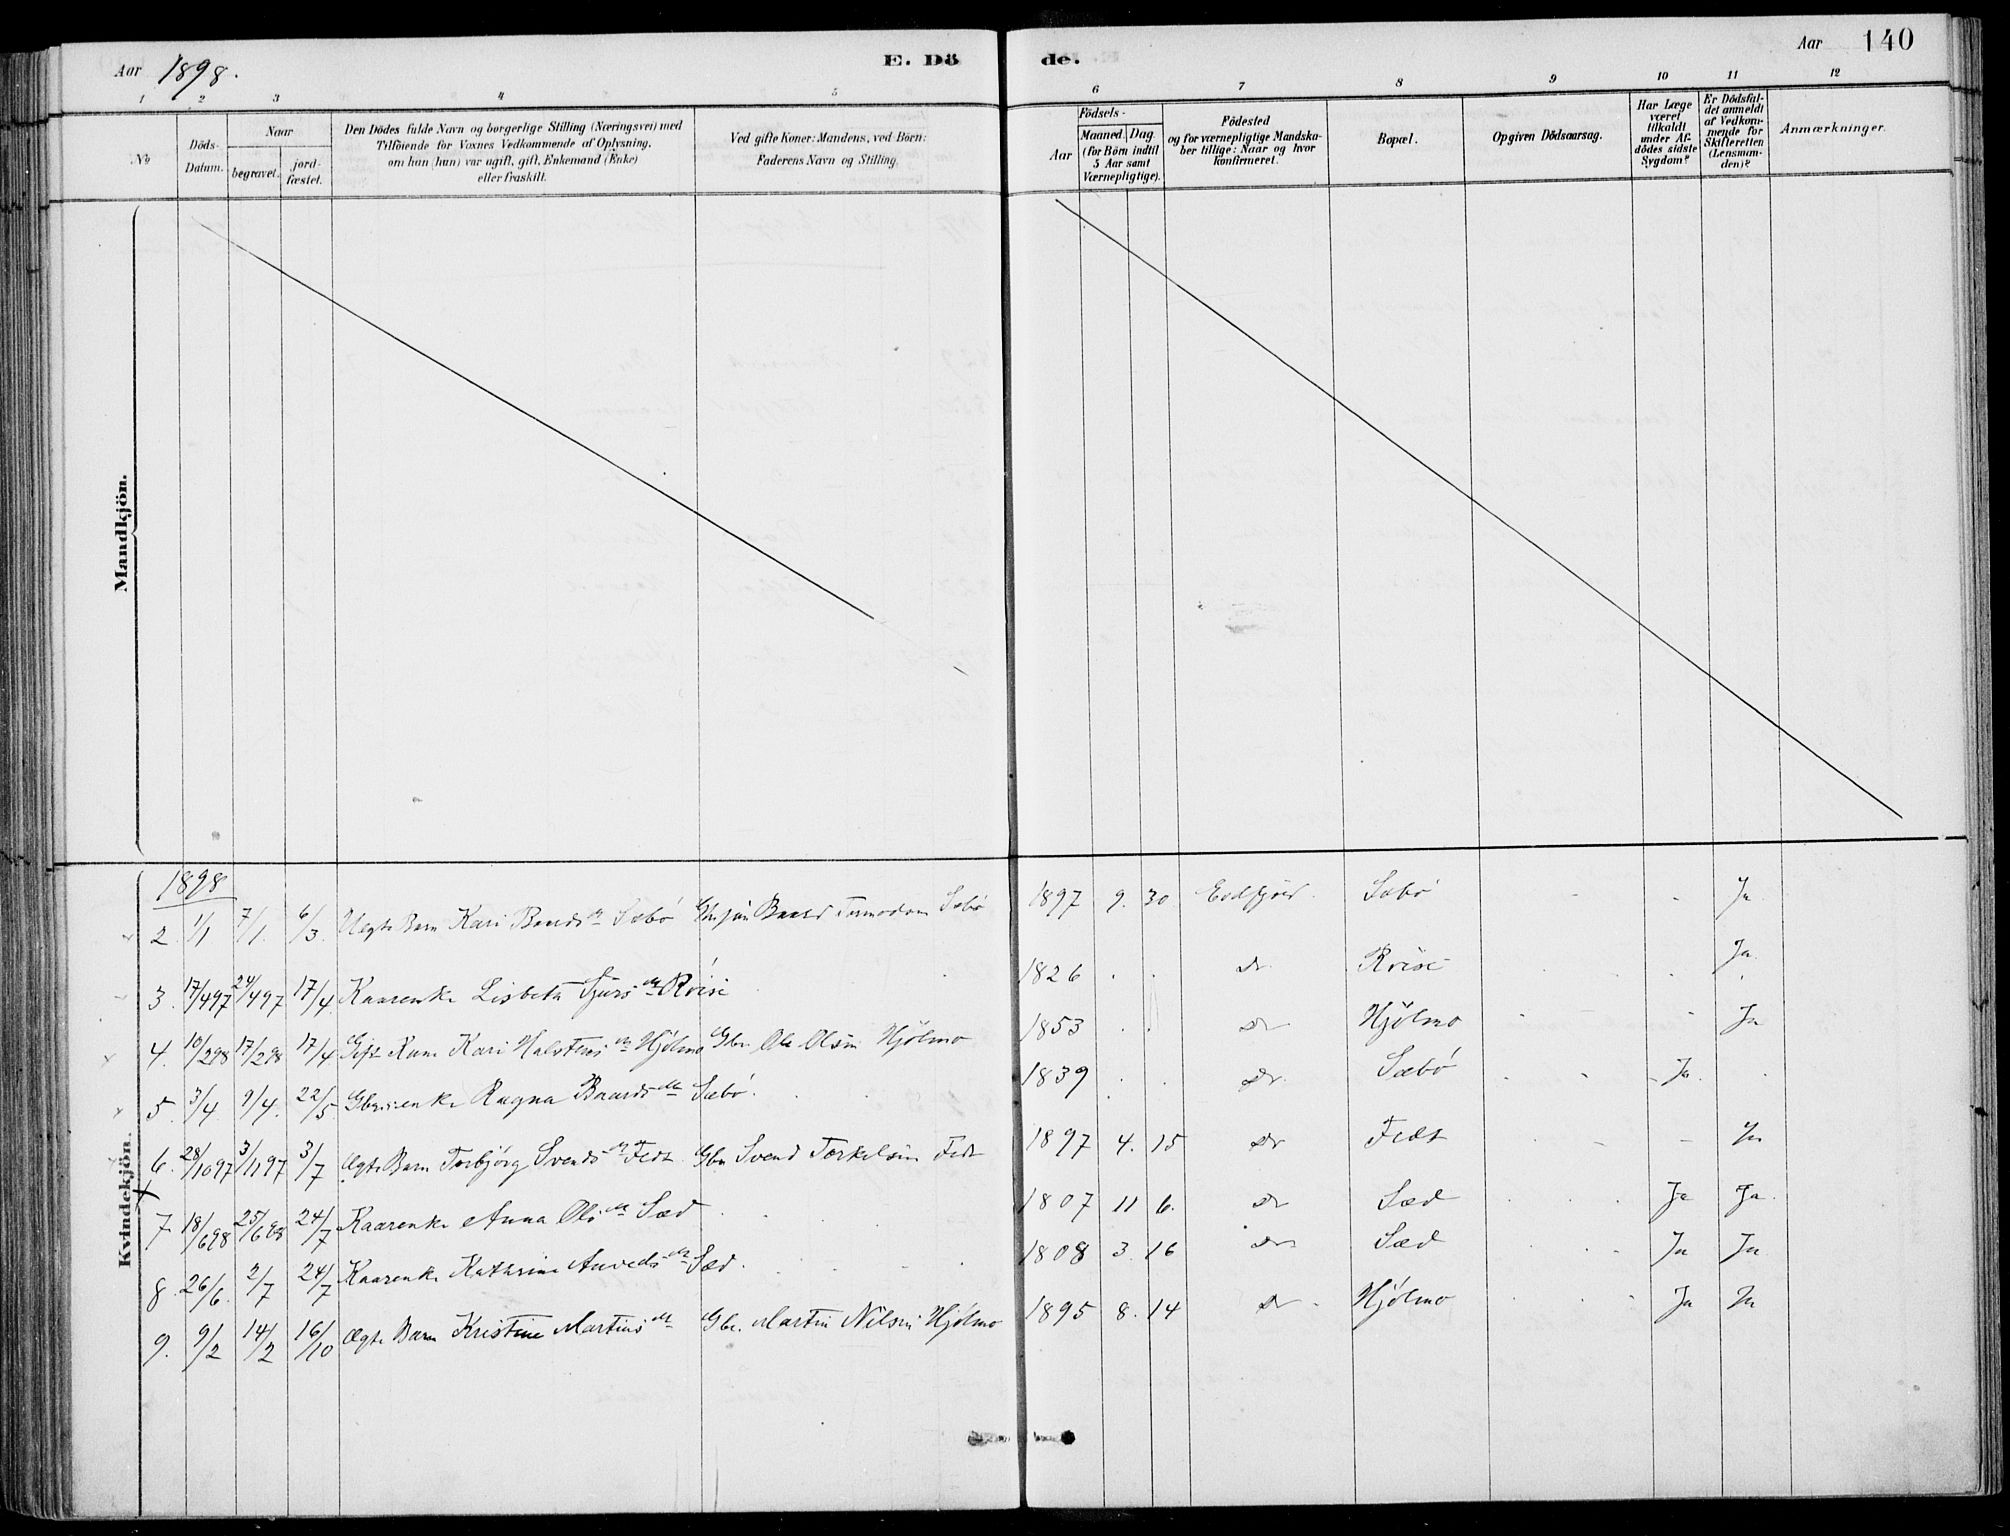 Aar 1898. E. Dö de. Aar 140
1 2 3 4 5 6 7 8 9 10 11 12
No
Döds-
Datum.
Naar
begravet.
jord-
fæstet.
Den Dödes fulde Navn og borgerlige Stilling (Næringsvei) med
Tilföiende for Voxnes Vedkommende af Oplysning,
om han (hun) var ugift, gift, Enkemand (Enke)
eller fraskilt.
Ved gifte Koner: Mandens, ved Börn:
Faderens Navn og Stilling.
Födsels-
Aar
Maaned. Dag.
(for Börn indtil
5 Aar samt
Værnepligtige).
Födested
og for værnepligtige Mandska-
ber tillige: Naar og hvor
konfirmeret.
Bopæl.
Opgiven Dödsaarsag.
Har Læge
været
tilkaldt
under Af-
dödes sidste
Sygdom?
Er Dödsfal-
det anmeldt
af Vedkom-
mende for
Skifteretten
(Lensman-
den)?
Anmærkninger.
Mandkjön.
Kvindekjön.
1898
2. 1/1 7/1. 6/3. Uegte Barn Kari Baards dr Sæbö Baard Tormodson Sæbö 1897 9. 30 Eidfjord. Sæbö Ja.
3. 17/497 24/497 17/4. Kaarenke Lisbeta Sjurs dtr Röise 1826 . . Do. Röise Ja.
4. 10/298 17/298 17/4. Gift Kone Kari Halstens dtr Hjölmo Gbr. Ole Olsen Hjölmo 1853 . . Do Hjölmo Ja
5. 3/4. 9/4. 22/5. Gbrenke Ragna Baards dtr Sæbö. 1839 . . Do. Sæbö Ja.
6. 28/1097 3/1197 3/7 Ægte Barn Torbjörg Svends dtr Fedt Gbr Svend Torkelsen Fedt 1897 4. 15 Do Fedt Ja
7 18/698 25/698 24/7 Kaarenke Anna Ols dtr Sæd 1807 11 6. Do Sæd Ja Ja.
8. 26/6. 2/7 24/7 Kaarenke Kathrine Anveds dtr Sæd. 1808 3. 16 Do Sæd Ja Ja
9. 9/2 14/2 16/10 Ægte Barn Kristine Martins dtr Gbr. Martin Nilsen Hjölmo 1895 8. 14 Do Hjölmo Ja Ja